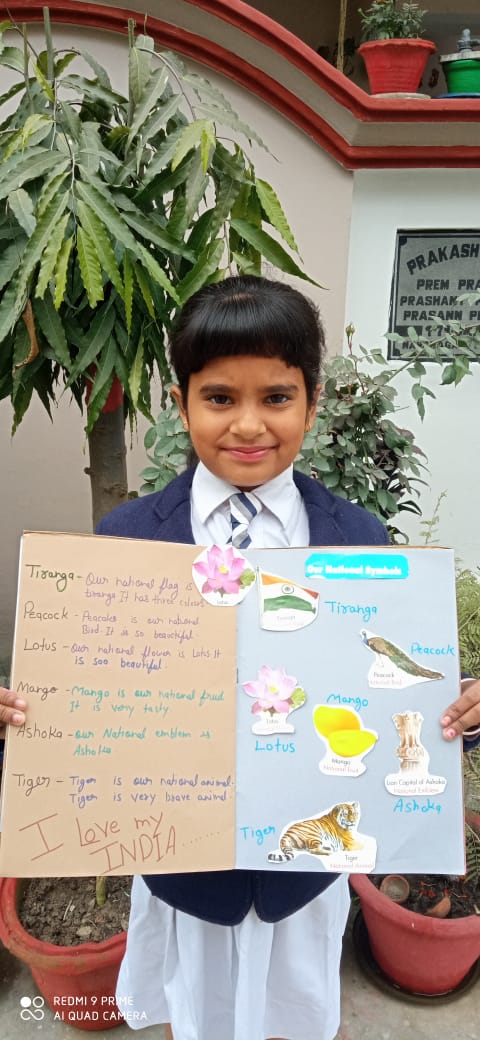 Tiranga - Our national flag is
tiranga It has three colours
Peacock - Peacoks is our national
Bird. It is so beautiful.
Lotus - Our national flower is Lotus It
is soo beautiful.
Mango - Mango is our national fruid
It is very tasty
Ashoka - our National emblem is
Ashoka.
Tiger - Tiger is our national animal.
Tiger is very brave animal.
I Love my
INDIA........
Lotus
Our National Symbols
Tiranga
Peacock
National Bird
Peacock
Lotus
Lotus
Mango
Mango
National Fruit
Lion Capital of Ashoka
National Emblem
Ashoka
Tiger
Tiger
National Animal
PRAKASH
PREM PRA
PRASHANT
PRASANN P
REDMI 9 PRIME
AI QUAD CAMERA